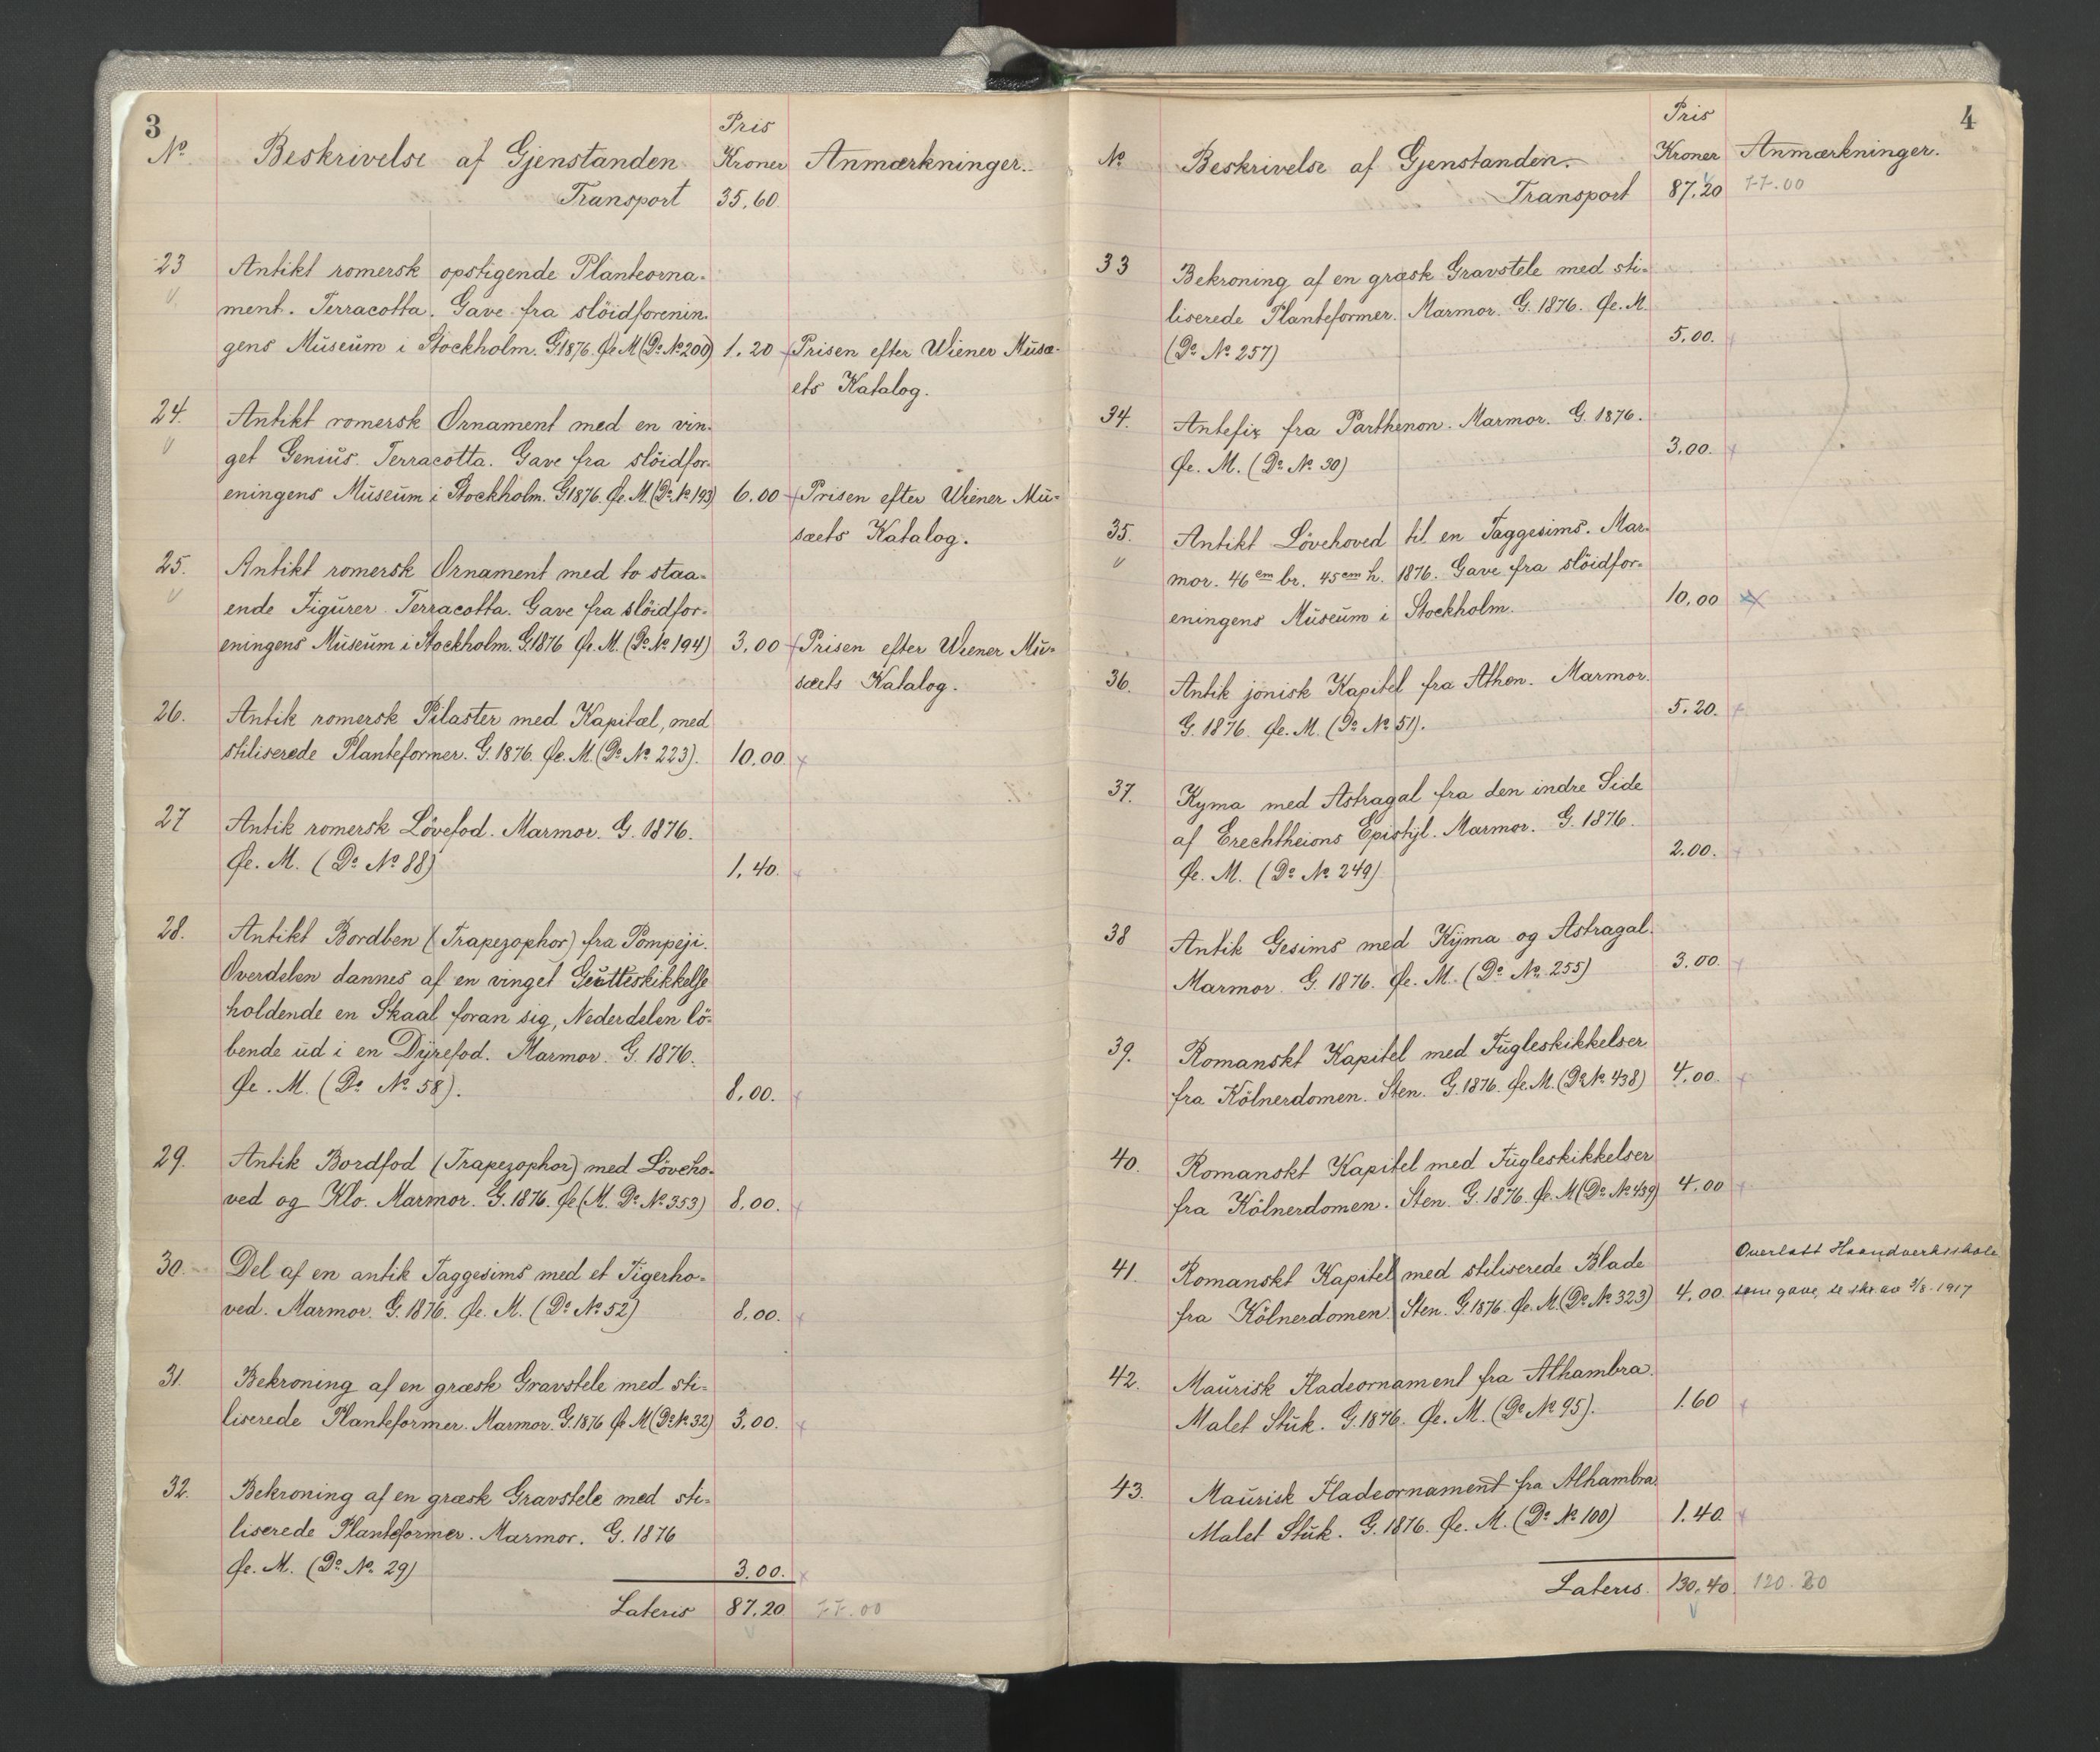 3
Pris
No Beskrivelse af Gjenstanden Kroner Anmærkninger.
Transport 35,60
23 Antikt romersk opstigende Planteorna-
ment. Terracotta. Gave fra slöidforenin-
gens Museum i Stockholm. G. 1876. Øe. M (Do No 200) 1.20 Prisen efter Wiener Musæ-
ets Katalog.
24. Antikt romersk Ornament med en vin-
get Genius. Terracotta. Gave fra slöidfor-
eningens Museum i Stockholm. G. 1876. Øe. M. (Do No 193) 6.00 Prisen efter Wiener Mu-
sæets Katalog.
25. Antikt romersk Ornament med to staa-
ende Figurer. Terracotta. Gave fra slöidfor-
eningens Museum i Stockholm. G. 1876 Øe. M. (Do No 194) 3.00 Prisen efter Wiener Mu-
sæets Katalog.
26. Antik romersk Pilaster med Kapitæl, med
stiliserede Planteformer. G. 1876. Øe. M. (Do No 223). 10.00. x
27 Antik romersk Lövefod. Marmor. G. 1876.
Øe. M. (Do No 88) 1.40. x
28. Antikt Bordben (Trapezophor) fra Pompeji.
Overdelen dannes af en vinget Gutteskikkelse
holdende en Skaal foran sig, Nederdelen lö-
bende ud i en Dyrefod. Marmor. G. 1876.
Øe. M. (Do No 58). 8.00. x
29. Antik Bordfod (Trapezophor) med Löveho-
ved og Klo. Marmor. G. 1876. Øe (M. Do No 353) 8.00. x
30. Del af en antik Taggesims med et Tigerho-
ved. Marmor. G. 1876. Øe. M. (Do No 52) 8.00. x
31. Bekroning af en græsk Gravstele med sti-
liserede Planteformer. Marmor. G. 1876 Øe M (Do No 32) 3.00. x
32. Bekroning af en græsk Gravstele med sti-
liserede Planteformer. Marmor. G. 1876
Øe. M. (Do No 29) 3.00. x
Lateris 87.20 77.00
4
Pris
No Beskrivelse af Gjenstanden. Kroner Anmærkninger.
Transport 87.20 77.00
33 Bekroning af en græsk Gravstele med sti-
liserede Planteformer. Marmor. G. 1876. Øe. M.
(Do No 257) 5.00. x
34. Antefix fra Parthenon. Marmor. G. 1876.
Øe. M. (Do No 30) 3.00. x
35. Antikt Lövehoved til en Taggesims. Mar-
mor. 46 cm br. 45 cm h. 1876. Gave fra slöidfor-
eningens Museum i Stockholm. 10.00 x
36. Antik jonisk Kapitel fra Athen. Marmor.
G. 1876. Øe. M. (Do No 51). 5.20. x
37. Kyma med Astragal fra den indre Side
af Erechtheions Epistyl. Marmor. G. 1876.
Øe. M. (Do No 249) 2.00. x
38 Antik Gesims med Kyma og Astragal.
Marmor. G. 1876. Øe. M. (Do No 255) 3.00. x
39. Romanskt Kapitel med Fugleskikkelser
fra Kölnerdomen. Sten. G. 1876. Øe. M. (Do No 438) 4.00. x
40. Romanskt Kapitel med Fugleskikkelser
fra Kölnerdomen. Sten. G. 1876. Øe. M (Do No 439) 4.00 x
41. Romanskt Kapitel med stiliserede Blade Overlatt Haandverksskolen
fra Kölnerdomen. Sten. G. 1876. Øe. M. (Do No 323) 4.00. som gave, se skr av 3/8-1917
42. Maurisk Fladeornament fra Alhambra.
Malet Stuk. G. 1876. Øe. M. (Do No 95). 1.60 x
43. Maurisk Fladeornament fra Alhambra.
Malet Stuk. G. 1876. Øe. M. (Do No 100) 1.40. x
Lateris. 130.40. 120.20